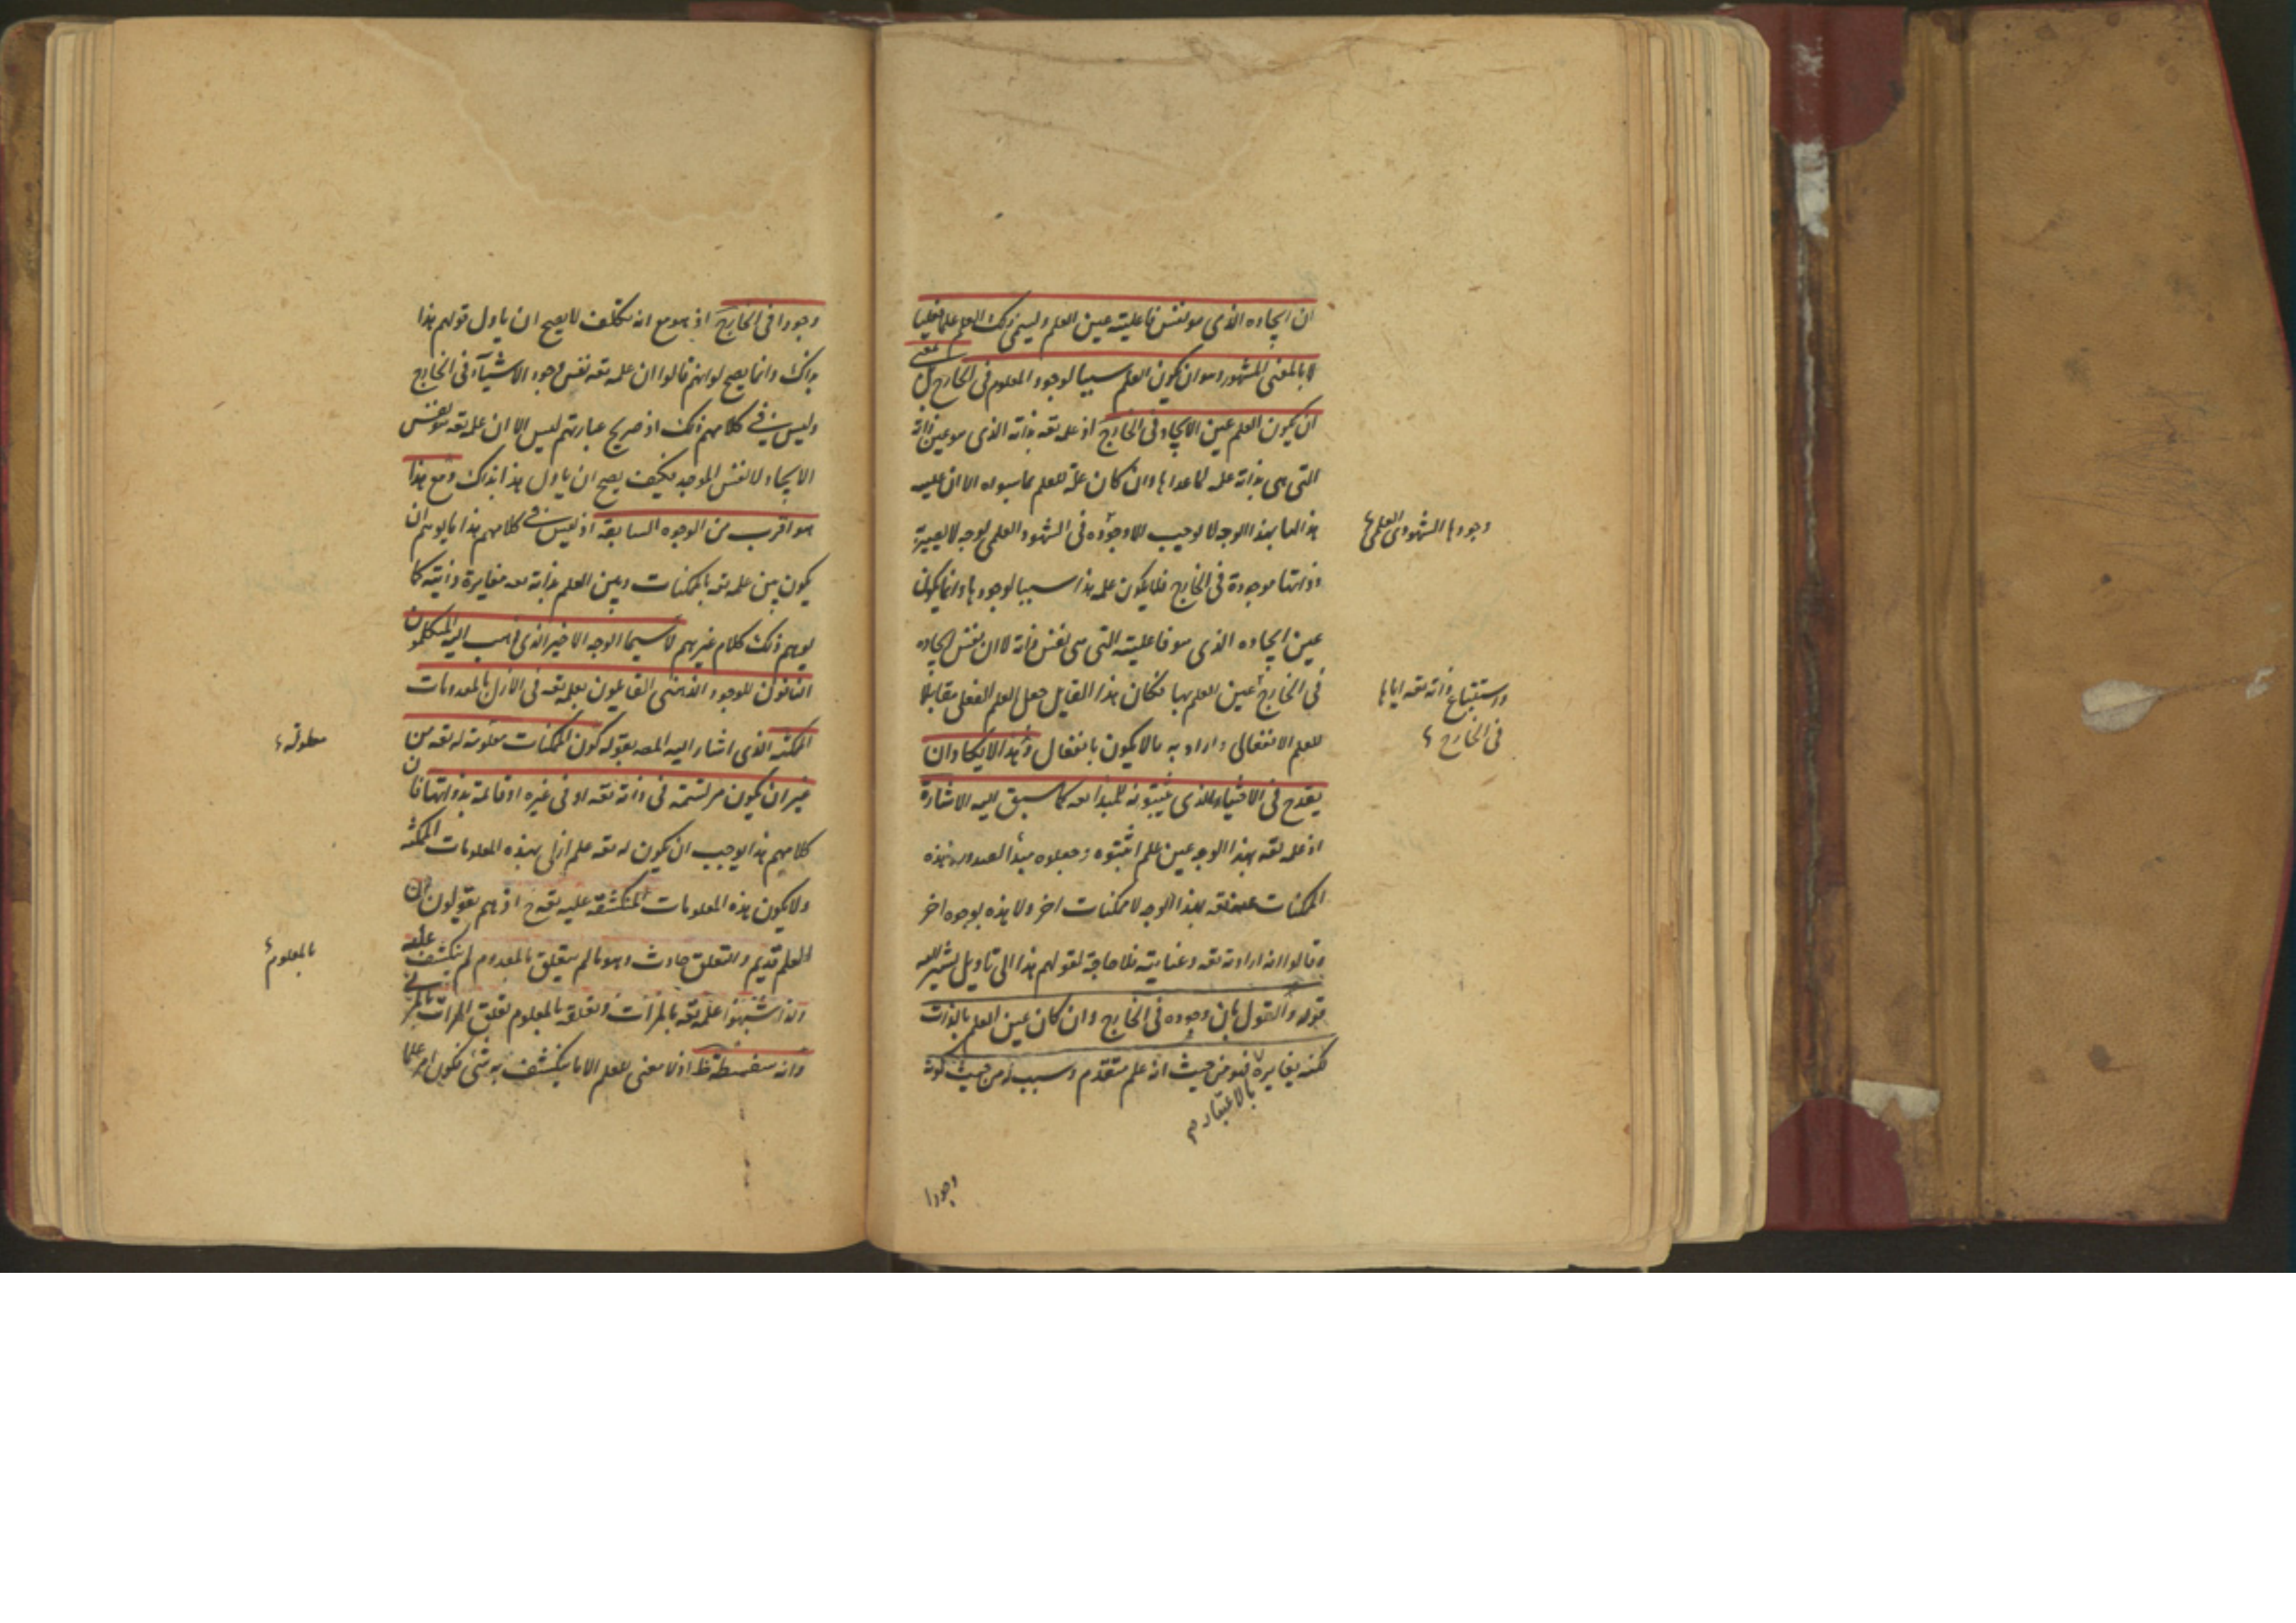 ان ايجاده الذى هو نفس فاعليته عين العلم وليسمى ذلك العلم علما فعليا
لا بالمعنى المشهور وهو ان يكون العلم سببا لوجود المعلوم فى الخارج بل بمعنى
ان يكون العلم عين الايجاد فى الخارج اذ علمه تعه بذاته الذى هو عين ذاته
التى هى بذاته علة لما عداها وان كان علة للعلم بما سواه الا ان علمه
هذا لها بهذا الوجه لا يوجب الا وجوده فى الشهود العلمى بوجه لا يعيبره
وذواتها موجودة فى الخارج فلا يكون علمه هذا سببا لوجودها وانما يكون
وجودها الشهودى العلمى
عين ايجاده الذى هو فاعليته التى هى نفس ذاته لا ان نفس ايجاده
فى الخارج عين العلم بها فكان هذا القايل جعل العلم الفعلى مقابلا
واستتباع ذاته تعه اياها
فى الخارج
للعلم الانفعالى واراد به ما لا يكون بانفعال وهذا الايكاد ان
يقدح فى الاختيار الذى يثبتونه للمبدا تعه كما سبق اليه الاشارة
اذ علمه تعه بهذا الوجه عين علم اثبتوه وجعلوه مبدأ لصدور هذه
الممكنات عنه تعه بهذا الوجه لا ممكنات اخر ولا هذه بوجوه اخر
وقالوا انه ارادته تعه وعنايته فلا حاجة لقولهم هذا الى تاويل يشير اليه
قوله والقول بان وجوده فى الخارج وان كان عين العلم بالذات
لكنه يغايره بالاعتبار فهو من حيث انه علم متقدم وسبب له من حيث كونه
وجودا
وجودا فى الخارج اذ هو مع انه تكلف لا يصح ان ياول قولهم هذا
بذاك وانما يصح لو انهم قالوا ان علمه تعه نفس وجود الاشيآء فى الخارج
وليس فى كلامهم ذلك اذ صريح عبارتهم ليس الا ان علمه تعه هو نفس
الايجاد لا نفس الموجد فكيف يصح ان ياول هذا بذاك ومع هذا
هو اقرب من الوجوه السابقة اذ ليس فى كلامهم هذا ما يوهم ان
يكون بين علمه تعه بالممكنات وبين العلم بذاته تعه مغايرة ذاتية كما
يوهم ذلك كلام غيرهم لا سيما الوجه الاخير الذى ذهب اليه المتكلمون
النافون للوجود الذهنى القائلون بعلمه تعه فى الازل بالمعدومات
الممكنه الذى اشار اليه المصه بقوله كون الممكنات معلومة له تعه من
غير ان يكون مرتسمة فى ذاته تعه او فى غيره او قائمة بذواتها فان
كلامهم هذا يوجب ان يكون له تعه علم ازلى بهذه المعلومات الممكنه
ولا يكون هذه المعلومات المنكشفة عليه تعه ح اذ هم يقولون ان
العلم قديم والتعلق حادث وهو ما لم يتعلق بالمعدوم لم ينكشف عليه
بالمعلوم
واذا شبهوا علمه تعه بالمرآت وتعلقه بالمعلوم تعلق المرآت بالمرئى
وانه سفسطة ظه اذ لا معنى للعلم الا ما ينكشف به شئ فكون امر علما